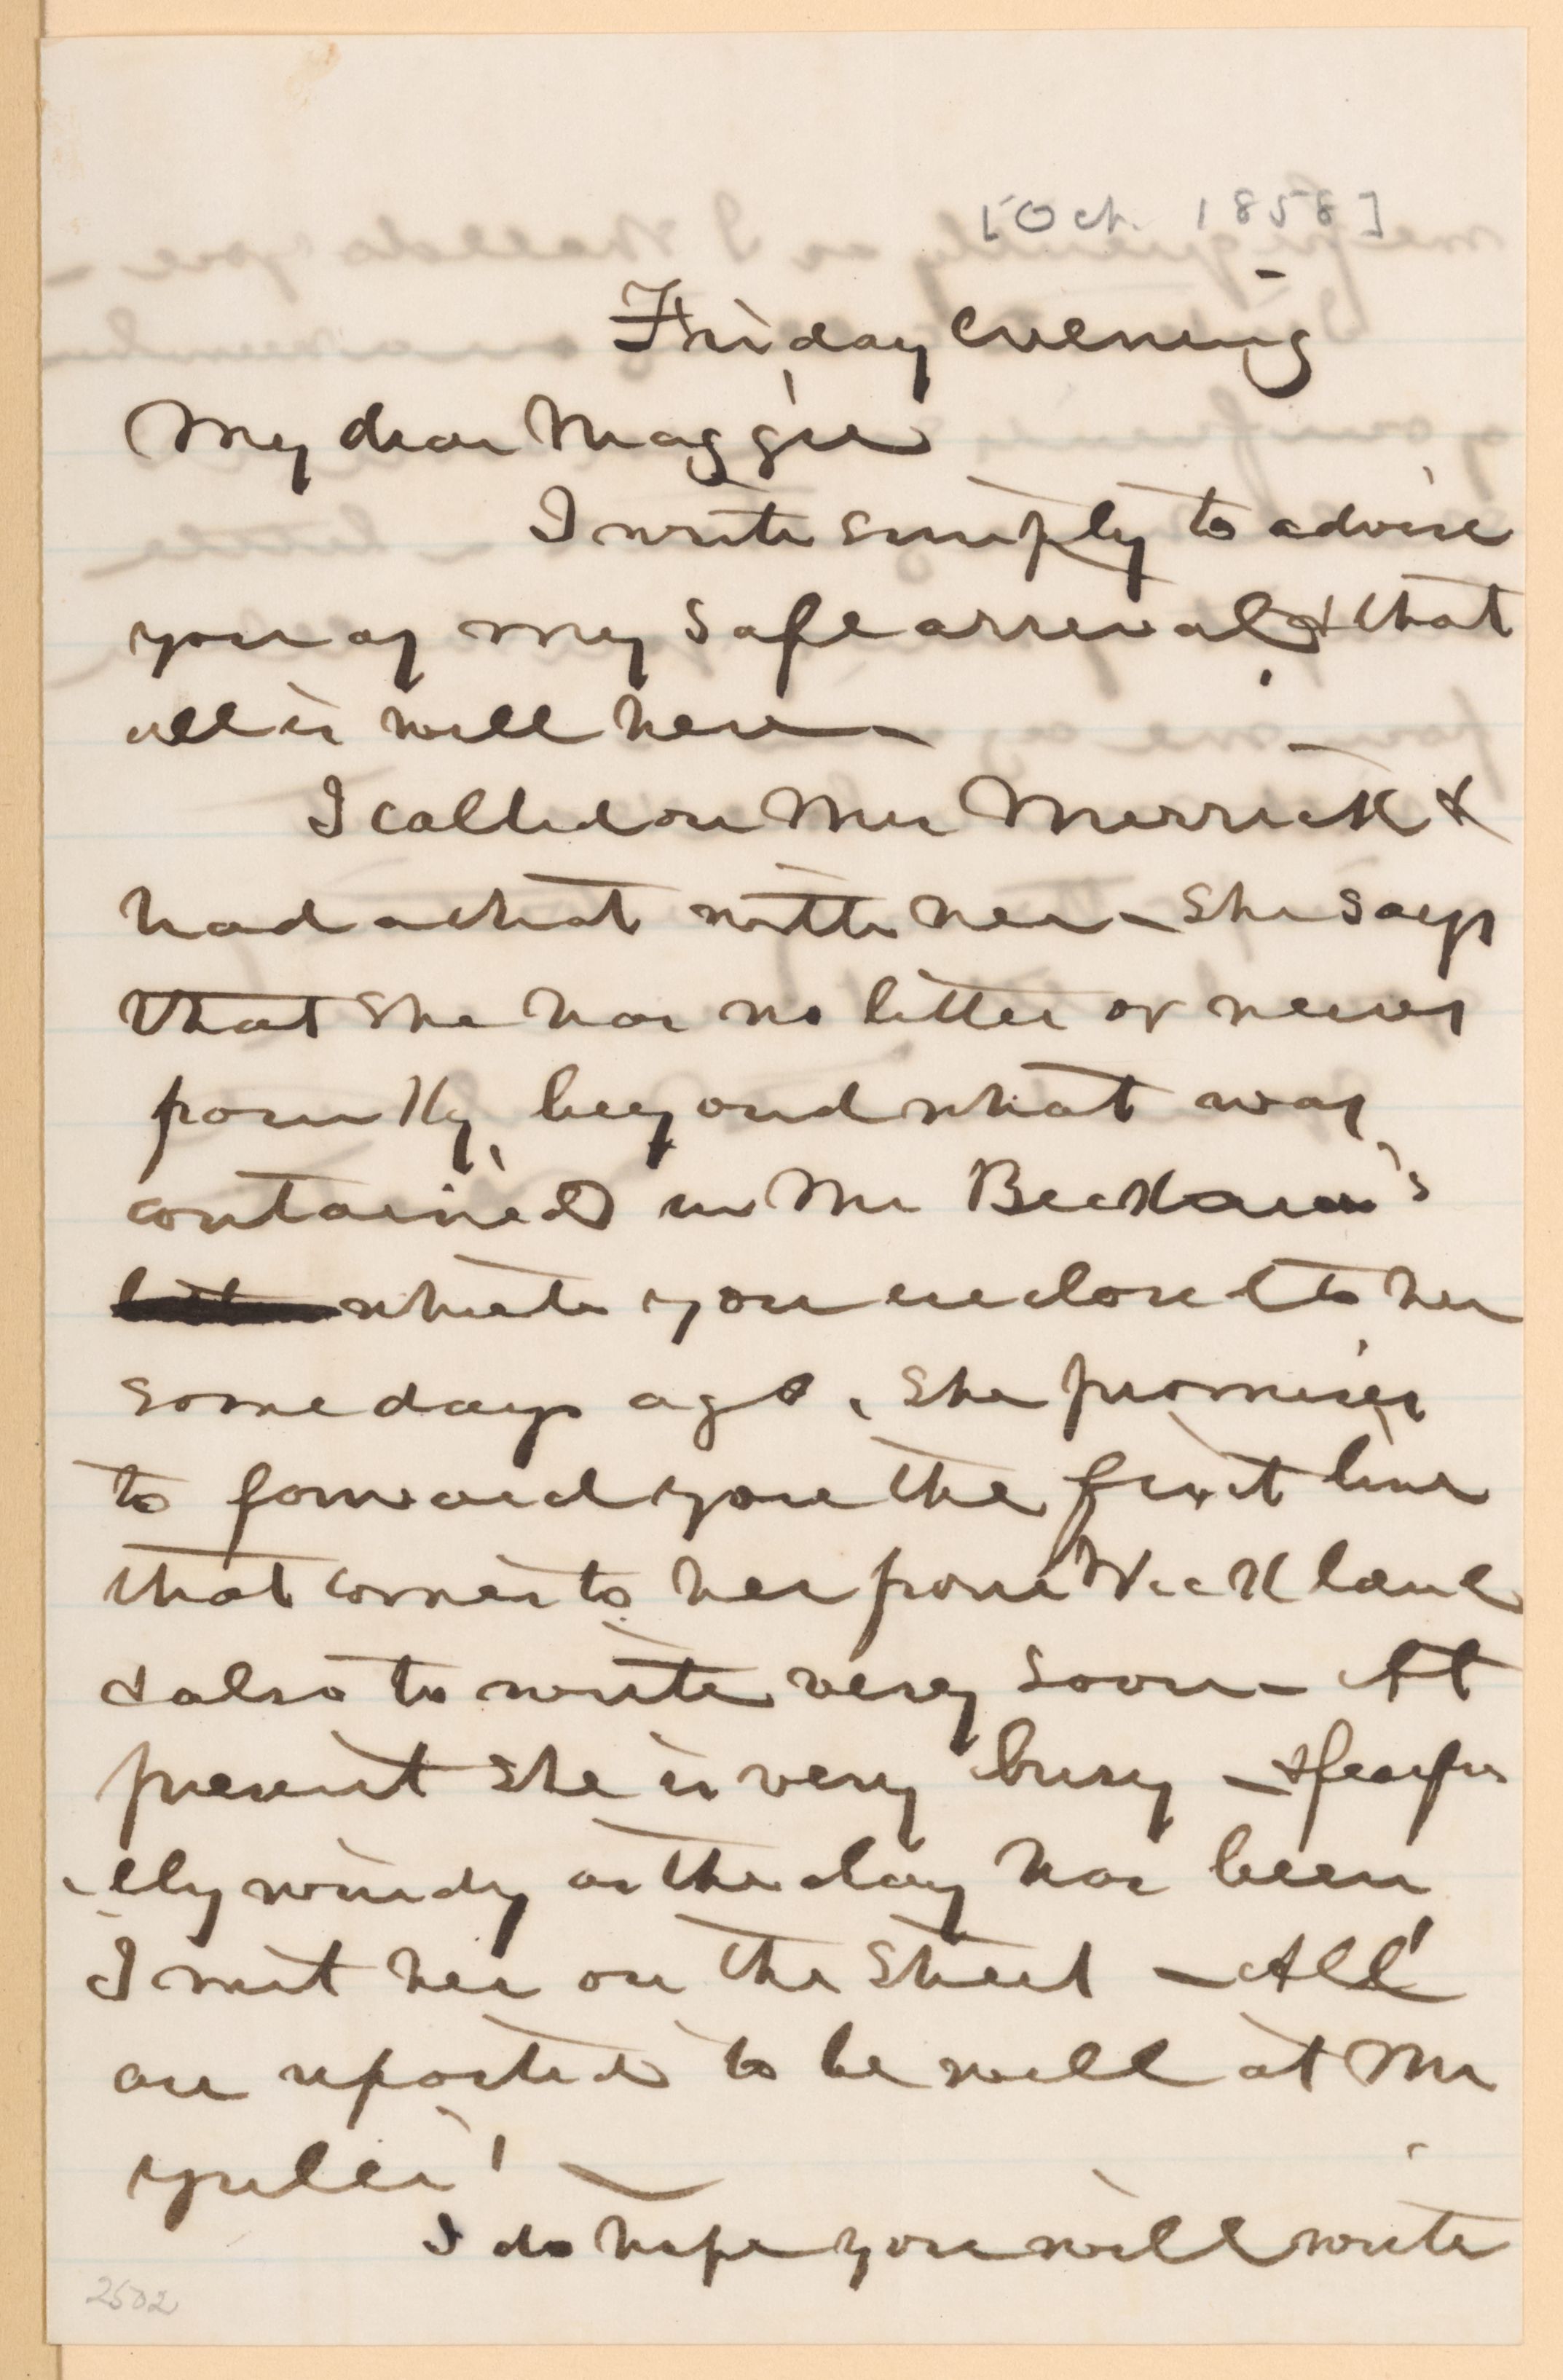 [Oct. 1858]
Friday evening
My dear Maggie
I write simply to advise
you of my safe arrival & that
all is well here —
I called on Mrs Merrick &
had a chat with her — She says
that she has no letter or news
from Ky, beyond what was
contained in Mr Beckham's
letter which you enclosed to her
some days ago. She promises
to forward you the first line
that comes to her from Wickland
& also to write very soon — At
present she is very busy — & fearfu
-lly windy as the day has been
I met her on the Street — All
are reported to be well at Mr
Yulee's —
I do hope you will write
2502